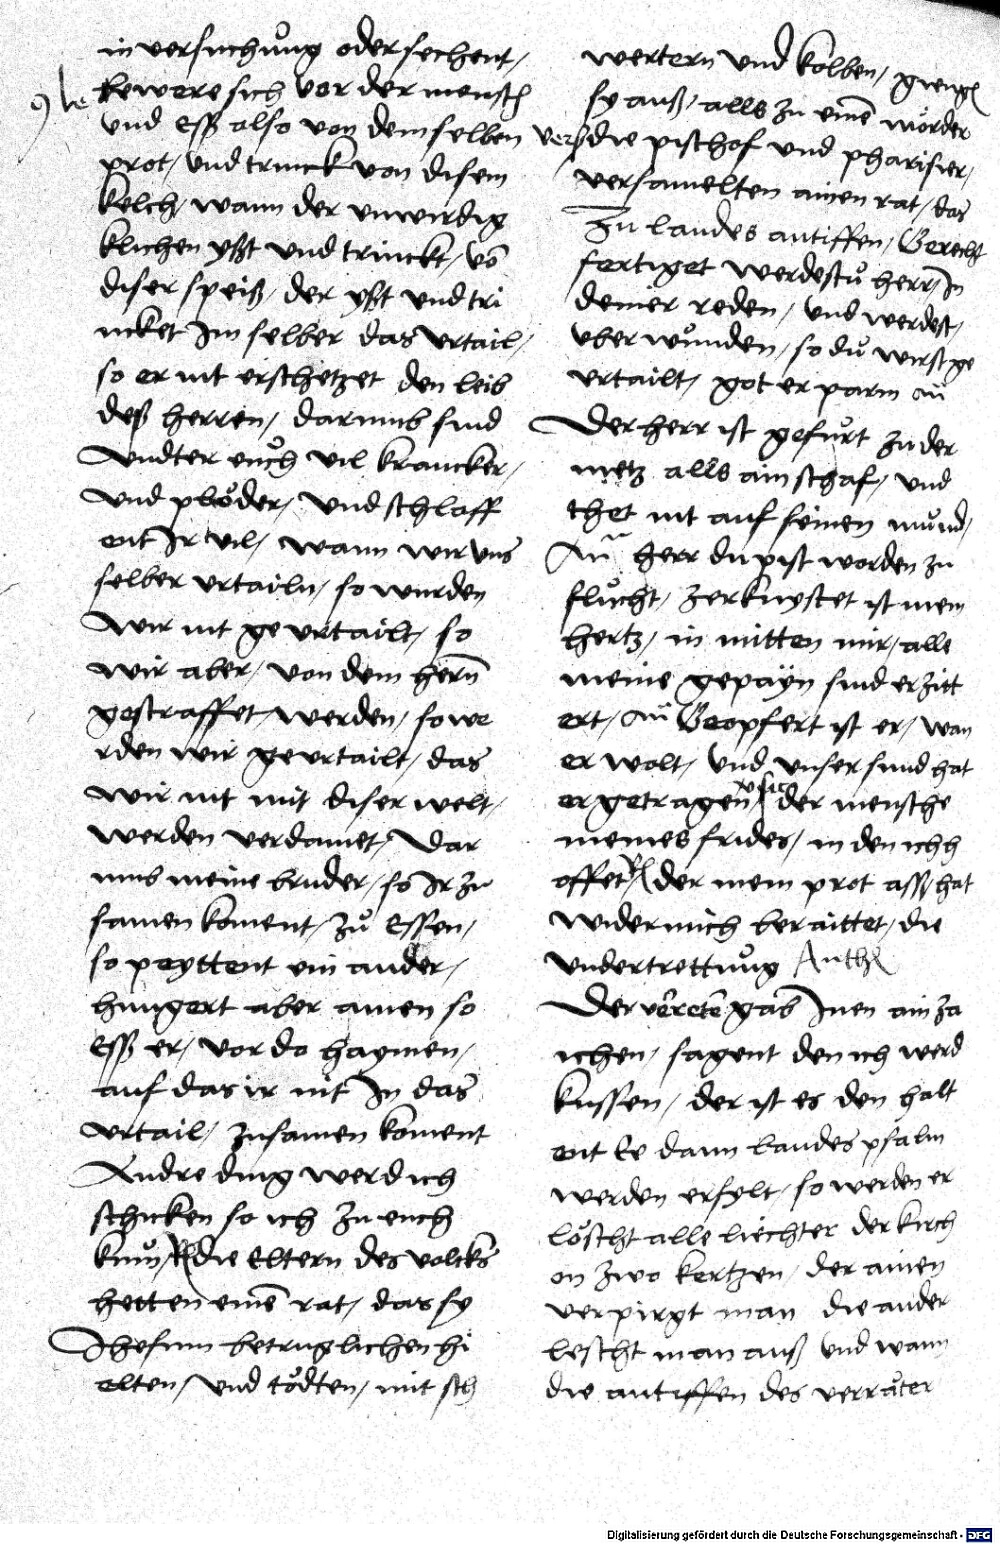 in versuchung oder sechent,
9 le
bewere sich vor der mensch
und Ess also von dem selben
prot, und trinck von disem
kelch, wann der unwirdig
klichen yßt und trinckt, vō
diser speiß, der yßt und tri
ncket Im selber das urtail,
so er nit erschetzet den leib
deß herren, darumb sind
undter euch vil krancker,
und plöder, und schlaff
ent Ir vil, wann wir uns
selber urtailn, so wurden
wir nit geurtailt, so
wir aber, von dem hern
gestraffet werden, so we
rden wir geurtailt, das
wir nit mit diser welt,
werden verdamet, Dar
umb meine bruder, so Ir zu
samen koment, zů Essen,
so peyttent ein ander,
hungert aber ainen so
Ess er, vor do haymen,
auf das ir nit In das
urtail, zusamen koment
Andre ding werd ich
schicken so ich zu euch
kum, die Eltern des volcks
hetten einē rat, das sy
Jhesum betruglichen hi
elten, und tödten, mit sch
wertern und kolben, giengē
sy auß, alls zu einē mörder
vers die pischof und pharisier,
versamelten ainen rat, das
Zu laudes antiffen, Gerecht
fertiget werdestů herr, In
deiner reden, und werdest,
uberwunden, so dů wirst ge
urtailt, got erparm
Der herr ist gefürt zu der
metz alls ain schaf, und
thet nit auf seinen mund,
herr du pist worden zu
flucht, zerknystet ist mein
hertz, in mitten mir, alle
meine gepayn sind erzitt
ert, Geopfert ist er, wan
er wolt, und unser sund hat
er getragen, der mensche
meines frides, in den ich h
offet, der mein prot ass hat
wider mich beraittet, die
undertrettung Anth
Der verretē gab Inen ain za
ichen, sagent den ich werd
kussen, der ist es den halt
ent Ee dann laudes psalm
werden erfylt, so werden er
löscht alle liechter der kirch
on zwo kertzen, der ainen
verpirgt man die ander
lescht man auß und wann
die antiffen des verräter
Digitalisierung gefördert durch die Deutsche Forschungsgemeinschaft - DFG